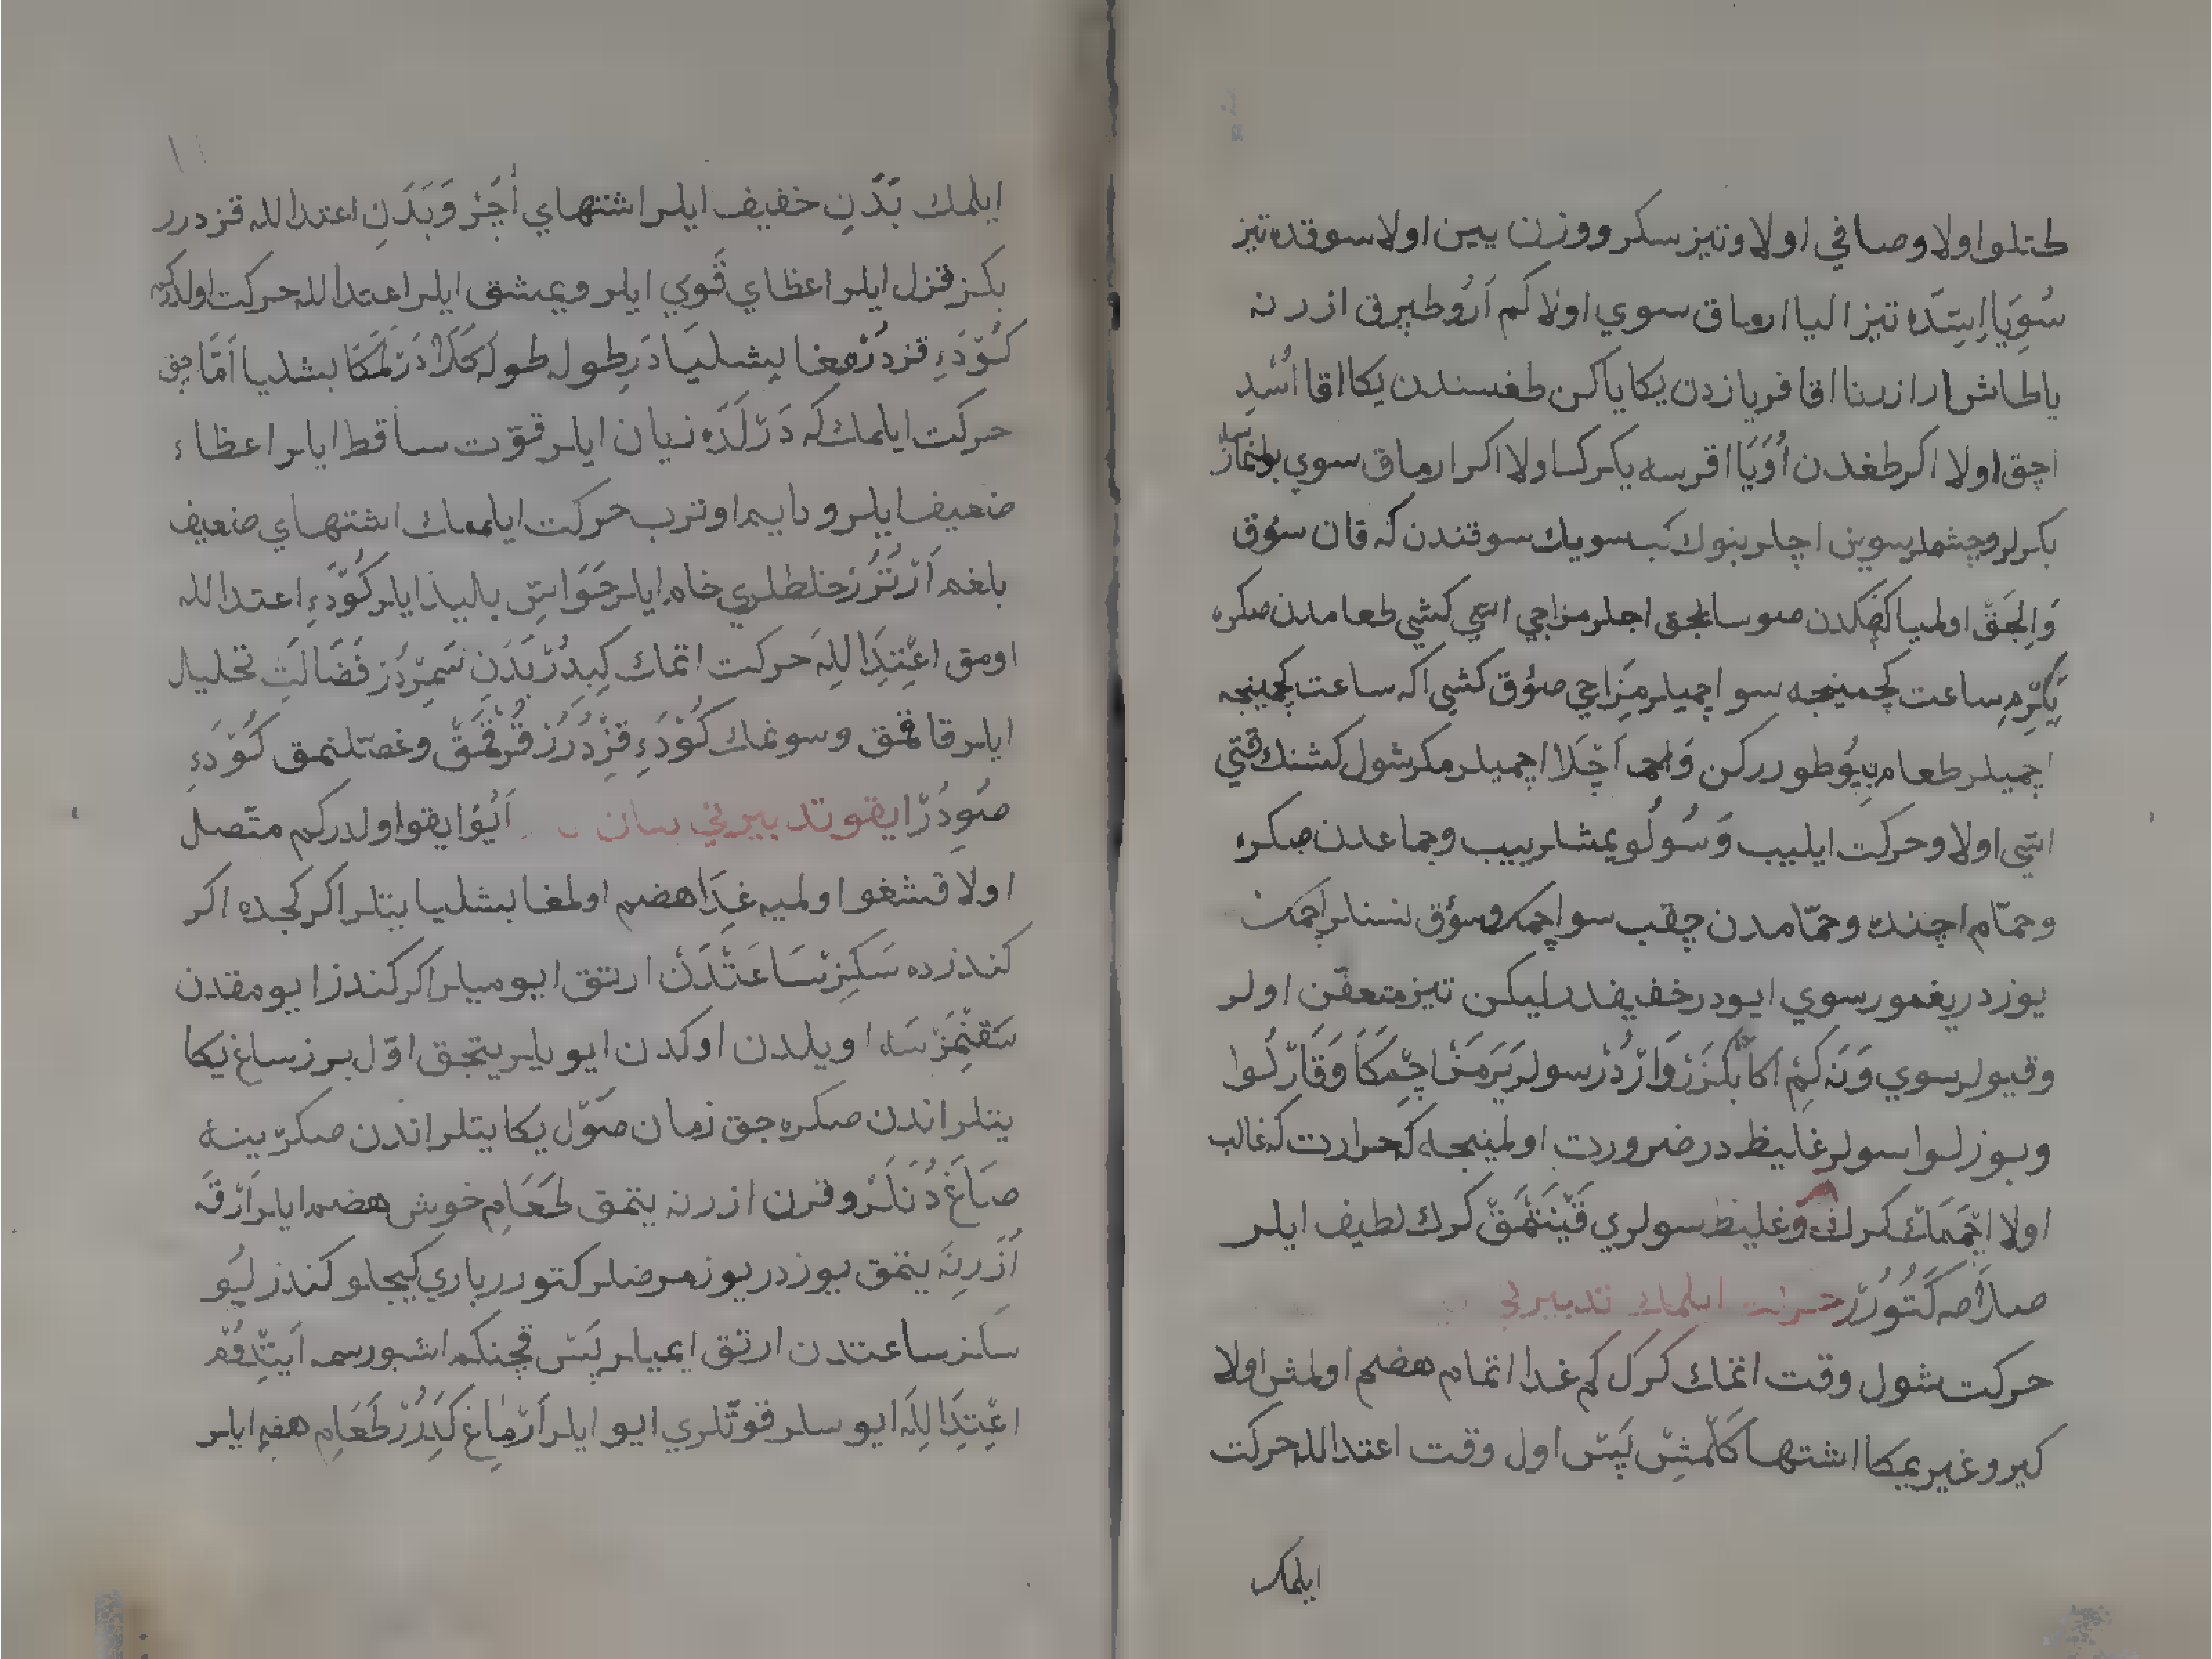 طتلو اولا وصافي اولا وتيز سكر ووزن يين اولا سوقده تيز
سُوِيَا اِسِتَده تيز اليا ارماق سوي اولا كم اَرُو طپرق ازرنه
يا طاش لر ازرنا اقا قر يازدن يكا يا كن طغسندن يكا اقا اُسْتِ
اچق اولا اكر طغدن اُوَيَا اقرسه يكركسا اولا اكر ارماق سوي بولنماز
بكرلر وچشملر سوين اچلر بنوك كب سويك سوقندن كه قان سوق
وَاِلجَقْ اولميا كفكدن صو سا لجق اجلر مزاجي اسي كشي طعامدن صكره
يِكِرْمِ ساعت كچمينجه سو اچميلر مِزَاجي صؤق كشي اكه ساعت كچمينجه
اچميلر طعام يِيُوطوررکن وَلحم اَجْلَا اچميلر مكر شول كشنك قتي
اسي اولا وحركت ايليب وَسُولُو يمشلر ييب وجماعدن صكره
وحمّام اچنده وحمّامدن چقب سو اچمك وسؤق نسنلر اچمك
يوزدر يغمور سوي ايودر خفيفدر ليكن تيز متعفّن اولر
وقيولر سوي وَنَه كِمْ اكا بكْزَرْ وَارْدُرْ سولر يَرَمَزْ اچْمَكَا وَقَارْلُوا
وبوزلوا سولر غليظدر ضرورت اولمينجه كه حرارت كه غالب
اولا اچْمَمَكْ كرك وغليظ سولري قَيْنَتْمَقْ كرك لطيف ايلر
صلاحه كَتُورُرْ حركت ايلمك تدبيرني
حركت شول وقت اتمك كرك كم غدا اتمام هضم اولمش اولا
كيرو غير يمكا اشتها كَلْمِشْ پَسْ اول وقت اعتداللـه حركت
ايلمك
ايلمك بَدَنِ خفيف ايلر اشتهاي اُجَرْ وَبَدَنِ اعتداللـه قزدرر
بكز قزل ايلر اعظاي قَوي ايلر ويمشق ايلر اعتداللـه حركت اولدركه
كَوْدَءِ قزدُرْمغا بشليَادَر طوله طوله كَلَا دَرْلَمَكَا بشليا اَمَّا چق
حركت ايلمك كه دَرْلَدَه زيان ايلر قوّت ساقط ايلر اعظاء
ضعيف ايلر ودايم اوترب حركت ايلممك اشتهاي ضعيف
بلغم اَرْتُرُرْ خلطلري خام ايلر حَوَاسِّ بليذ ايلر كَوْدَءِ اعتداللـه
اومق اعْتِدَالِلَه حركت اتمك كِبِدُرْ بَدَنِ سَمِرْدُرْ فَضَالَتِ تحليل
ايلر قاقمق وسونمك كَوْدَءِ قزْدُرُرْ قُرْقْمَقْ وغصّلنمق كَوْدَءِ
صُوِدُرْ ايقو تدبيرني بيان اَيُوْ ايقو اولدركم متّصل
اولا قشغو اولميه غِدَا هضم اولمغا بشليا يتلر اكر كجده اكر
كندزده سَكِزْ سَاعَتْدَنْ ارتق ايوميلر اكر كندز ايومقدن
سَقنْمَزْسَه اويلدن اوكدن ايويلر يتجق اوّل برز ساغ يكا
يتلر اندن صكره چق زمان صوْل يكا يتلر اندن صكرْ ينه
صَاغَ دُنَلَرْ وقرن ازرنه يتمق طَعَامِ خوش هضم ايلر اَرْقَه
اُزَرِنَه يتمق يوزدر يوز مرضلر كتورر باري كيجلو كندزليُو
سكز ساعتدن ارتق ايميلر پَسْ قچنكم اشبورسمه اَيتْدِقُمْ
اعْتِدَالِلَه ايوسلر قوّتلري ايو ايلر اَرْمَاغ كِدَرُرْ طَعَامِ هضم ايلر